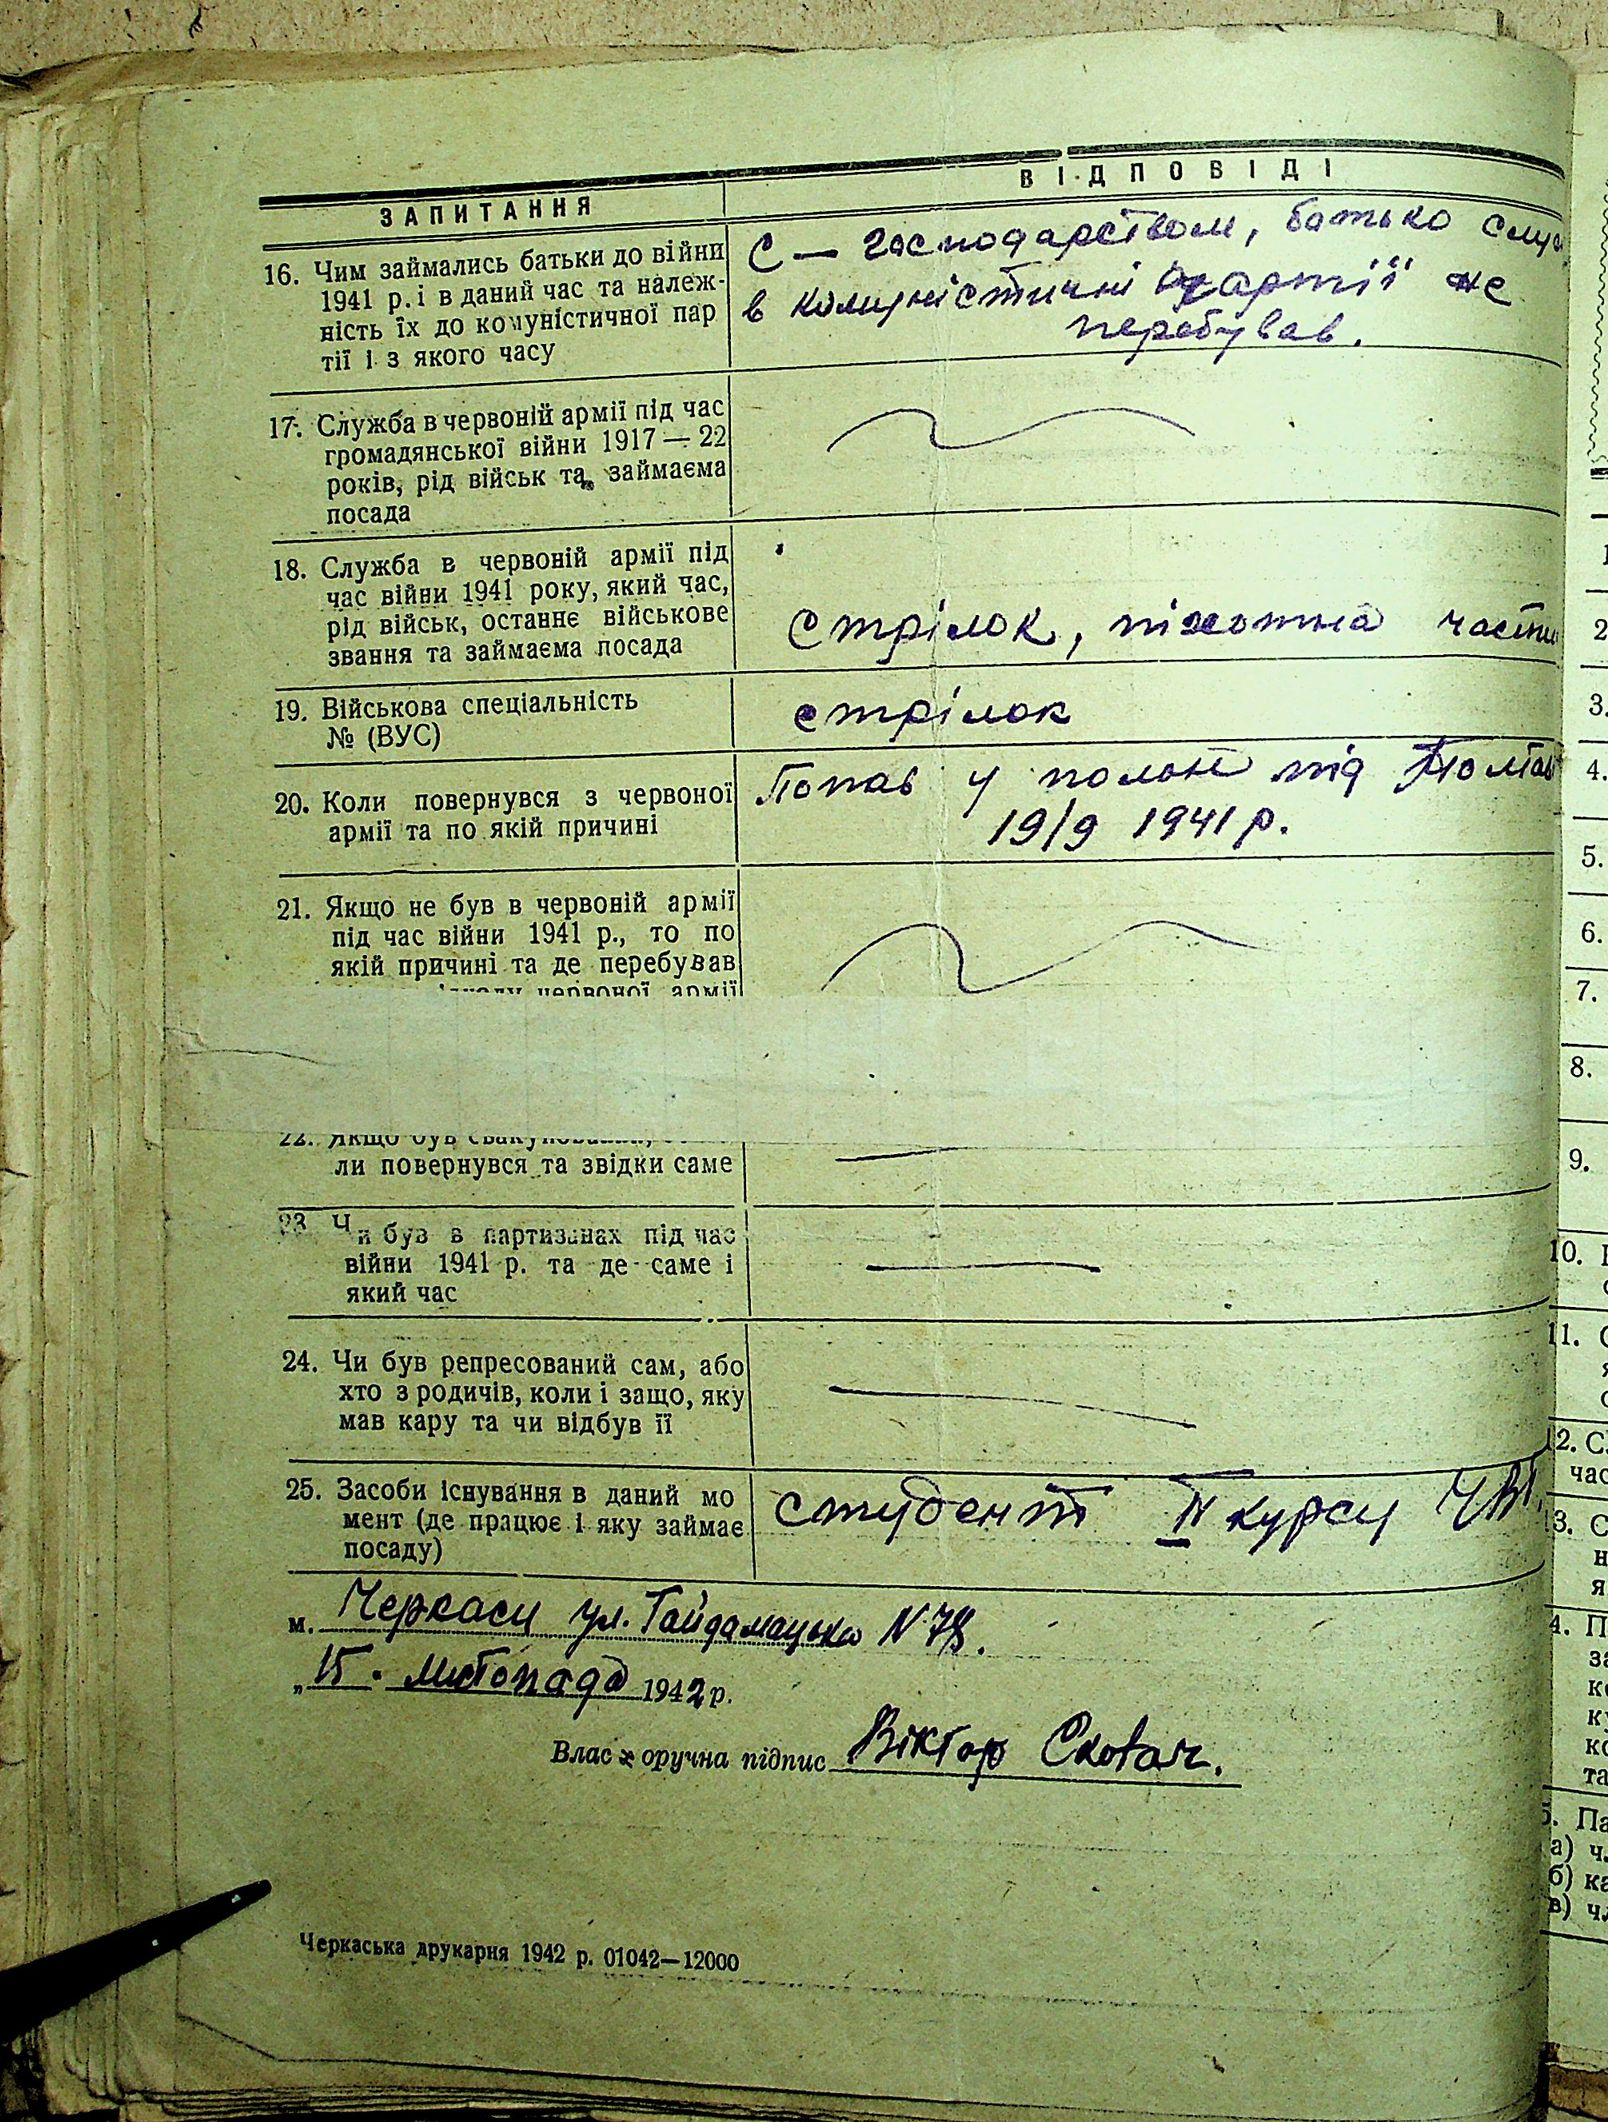 ЗАПИТАННЯ
ВІДПОВІДІ
16. Чим займались батьки до війни
1941 р. і в даний час та належ-
ність їх до комуністичної пар
тії і з якого часу
С — господарством, батько слу
в комуністичні партії не
перебував.
17. Служба в червоній армії під час
громадянської війни 1917 — 22
років, рід військ та займаєма
посада
18. Служба в червоній армії під
час війни 1941 року, який час,
рід військ, останнє військове
звання та займаєма посада
стрілок, піхотна части
19. Військова спеціальність
№ (ВУС)
стрілок
20. Коли повернувся з червоної
армії та по якій причині
Попав у полон під Полтав
19/9 1941 р.
21. Якщо не був в червоній армії
під час війни 1941 р., то по
якій причині та де перебував
червоної армії
22. Якщо був
ли повернувся та звідки саме
23. Чи був в партизанах під час
війни 1941 р. та де саме і
який час
24. Чи був репресований сам, або
хто з родичів, коли і защо, яку
мав кару та чи відбув її
25. Засоби існування в даний мо
мент (де працює і яку займає
посаду)
студент IV курсу
м. Черкаси ул. Гайдамацька N 78.
„15. листопада 1942 р.
Власноручна підпис Віктор Сковач.
Черкаська друкарня 1942 р. 01042—12000
1
2
3.
4.
5.
6.
7.
8.
9.
10.
11.
12. С
час
3. С
н
я
4. П
за
к
к
к
та
5. Па
а) ч
б) ка
в) чл